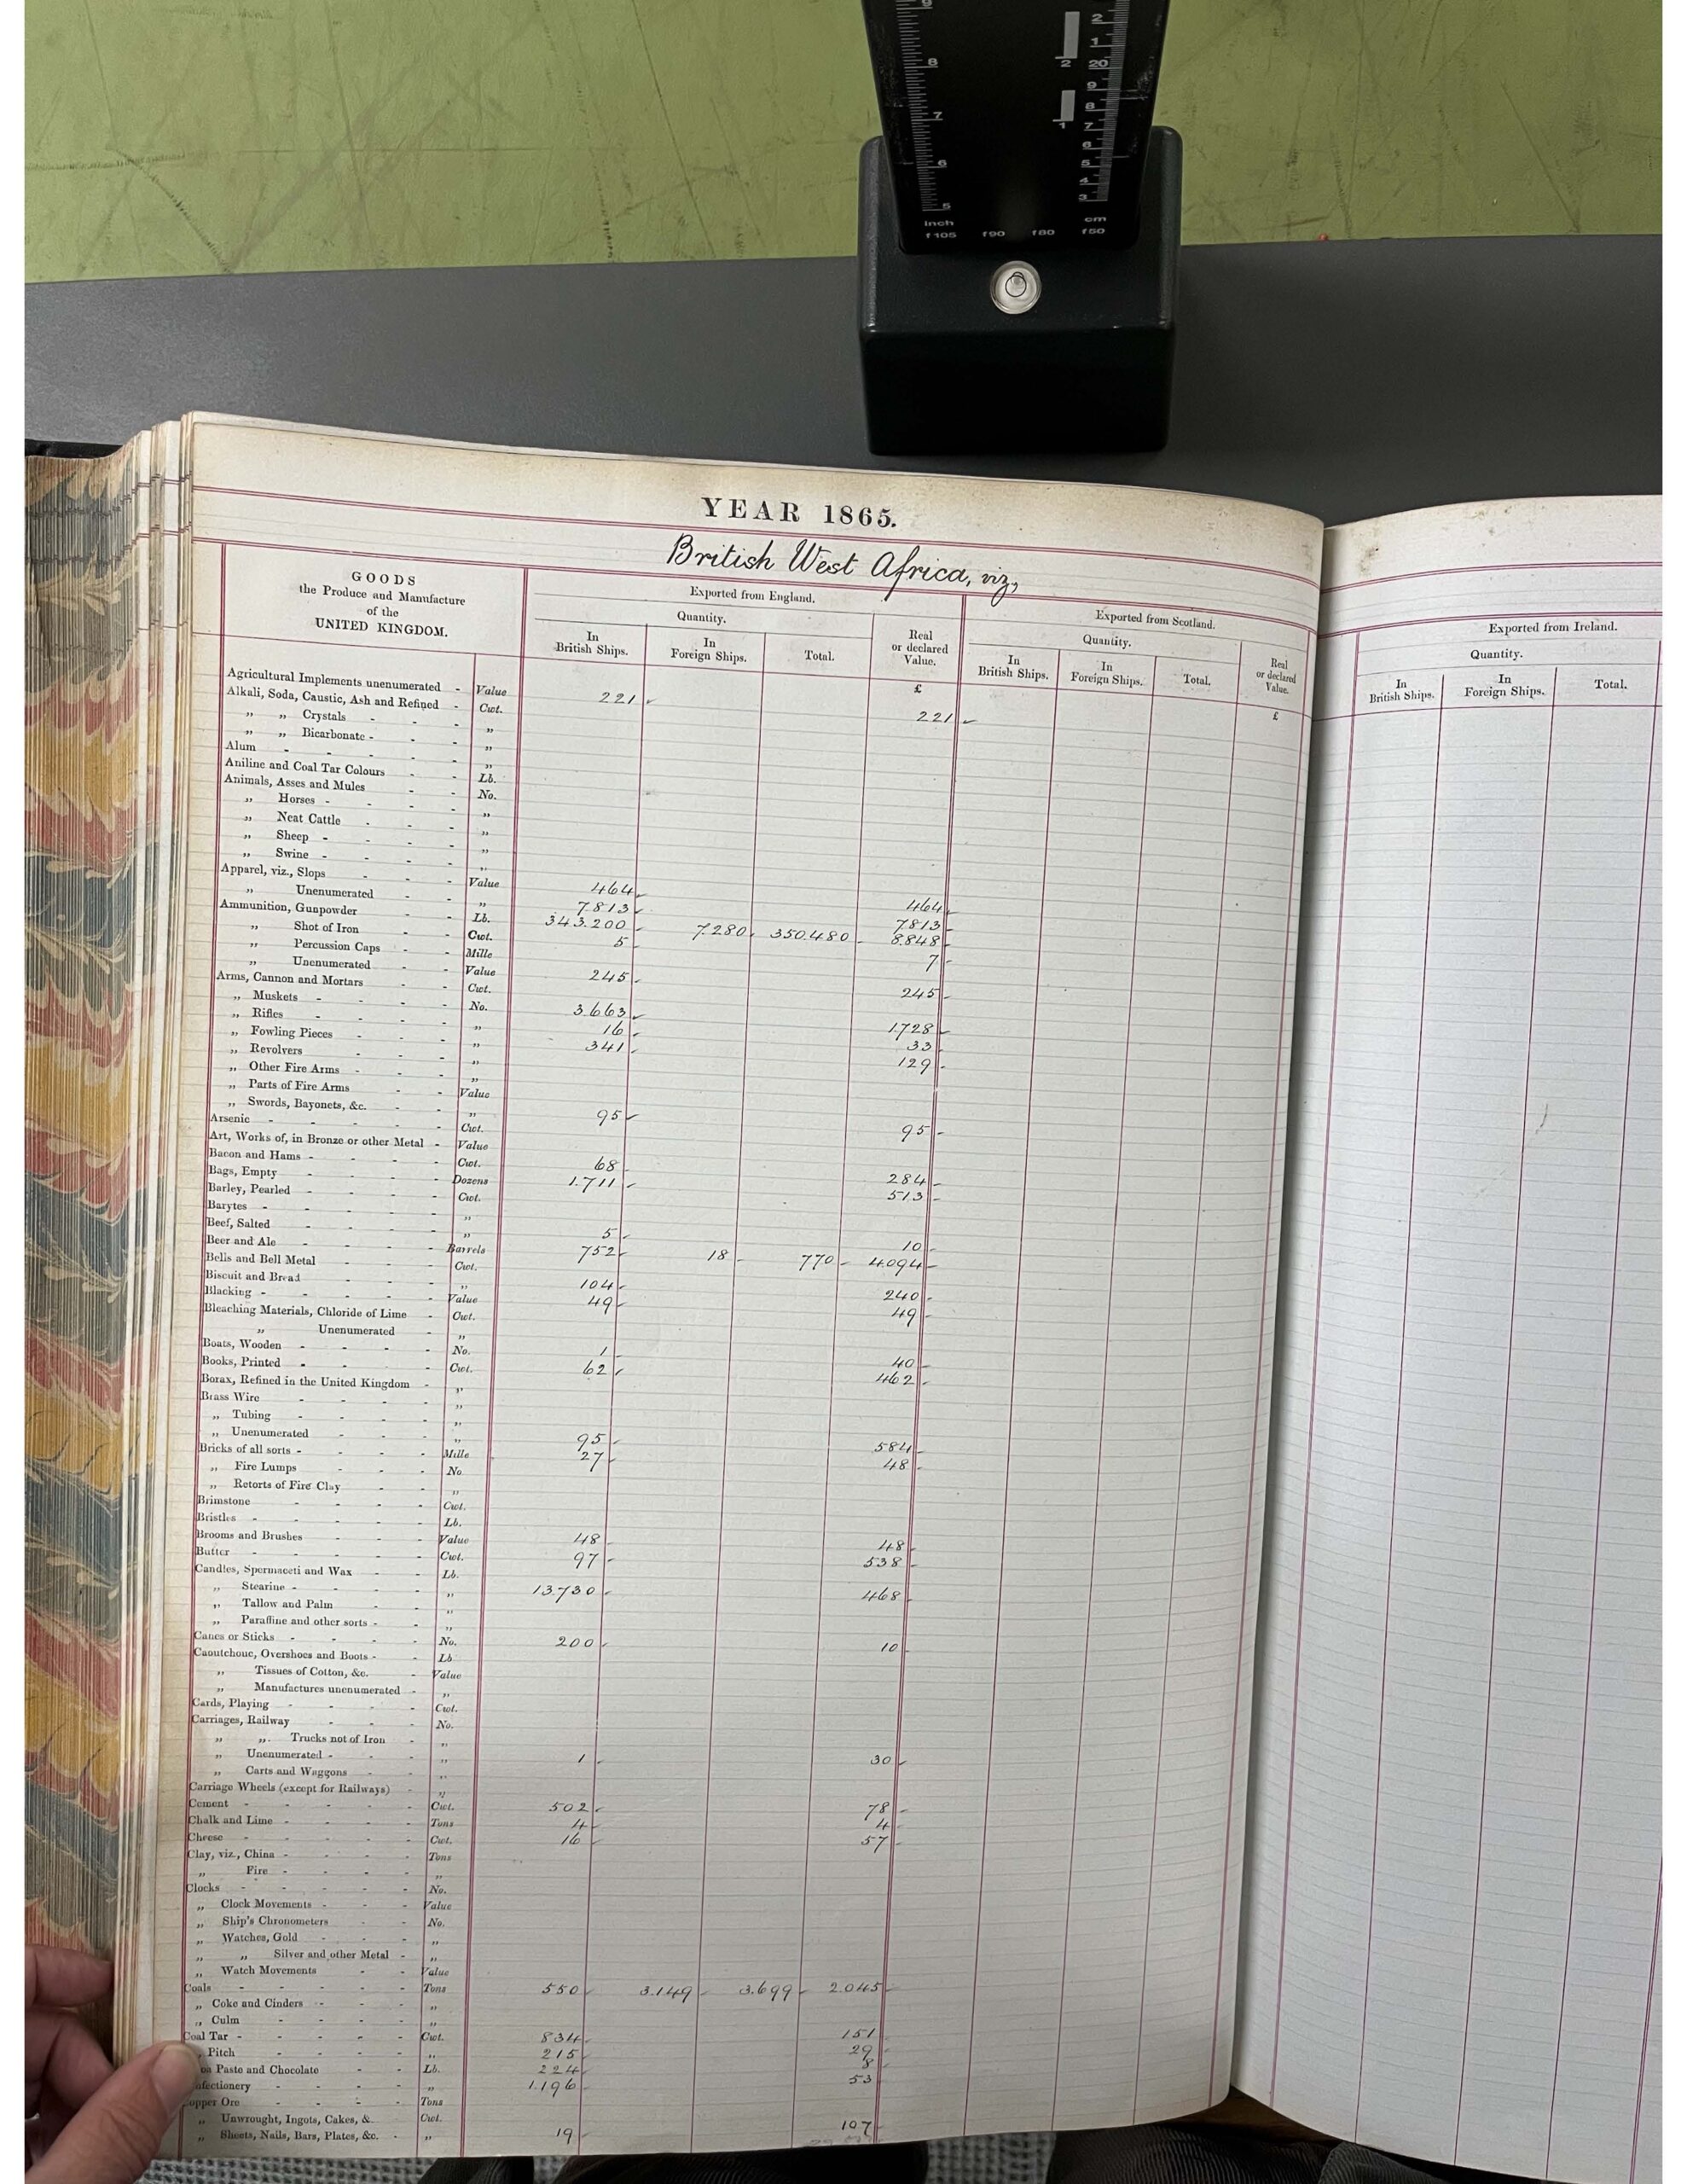 9 8 7 6 5
2 1 20 9 8 7 6 5 4 3
2 1
inch cm
f105 f90 f80 f50
YEAR 1865.
British West Africa, viz,
GOODS
the Produce and Manufacture
of the
UNITED KINGDOM.
Exported from England. Exported from Scotland. Exported from Ireland.
Quantity. Real or declared Value. Quantity. Real or declared Value. Quantity.
In British Ships. In Foreign Ships. Total. In British Ships. In Foreign Ships. Total. In British Ships. In Foreign Ships. Total.
£ £
Agricultural Implements unenumerated - Value 221 221
Alkali, Soda, Caustic, Ash and Refined - Cwt.
„ „ Crystals - - - „
„ „ Bicarbonate - - - „
Alum - - - - - „
Aniline and Coal Tar Colours - - Lb.
Animals, Asses and Mules - - No.
„ Horses - - - - „
„ Neat Cattle - - - „
„ Sheep - - - - „
„ Swine - - - - „
Apparel, viz., Slops - - - Value 464 464
„ Unenumerated - - „ 7813 7813
Ammunition, Gunpowder - - Lb. 343.200 7.280 350.480 8.848
„ Shot of Iron - - Cwt. 5 7
„ Percussion Caps - - Mille
„ Unenumerated - - Value 245 245
Arms, Cannon and Mortars - - Cwt.
„ Muskets - - - - No. 3.663 1728
„ Rifles - - - - „ 16 33
„ Fowling Pieces - - - „ 341 129
„ Revolvers - - - „
„ Other Fire Arms - - - „
„ Parts of Fire Arms - - Value
„ Swords, Bayonets, &c. - - „ 95 95
Arsenic - - - - - Cwt.
Art, Works of, in Bronze or other Metal - Value
Bacon and Hams - - - - Cwt. 68 284
Bags, Empty - - - - Dozens 1.711 513
Barley, Pearled - - - - Cwt.
Barytes - - - - - „
Beef, Salted - - - - „ 5 10
Beer and Ale - - - - Barrels 752 18 770 4.094
Bells and Bell Metal - - - Cwt.
Biscuit and Bread - - - „ 104 240
Blacking - - - - - Value 49 49
Bleaching Materials, Chloride of Lime - Cwt.
„ Unenumerated - „
Boats, Wooden - - - - No. 1 40
Books, Printed - - - - Cwt. 62 462
Borax, Refined in the United Kingdom - „
Brass Wire - - - - „
„ Tubing - - - - „
„ Unenumerated - - - „ 95 584
Bricks of all sorts - - - - Mille 27 48
„ Fire Lumps - - - No
„ Retorts of Fire Clay - - „
Brimstone - - - - Cwt.
Bristles - - - - - Lb.
Brooms and Brushes - - - Value 48 48
Butter - - - - - Cwt. 97 538
Candles, Spermaceti and Wax - - Lb.
„ Stearine - - - - „ 13.730 468
„ Tallow and Palm - - „
„ Paraffine and other sorts - - „
Canes or Sticks - - - - No. 200 10
Caoutchouc, Overshoes and Boots - - Lb
„ Tissues of Cotton, &c. - Value
„ Manufactures unenumerated - „
Cards, Playing - - - - Cwt.
Carriages, Railway - - - No.
„ „ Trucks not of Iron - „
„ Unenumerated - - - „ 1 30
„ Carts and Waggons - - „
Carriage Wheels (except for Railways) - „
Cement - - - - - Cwt. 502 78
Chalk and Lime - - - - Tons 4 4
Cheese - - - - - Cwt. 16 57
Clay, viz., China - - - - Tons
„ Fire - - - - „
Clocks - - - - - No.
„ Clock Movements - - - Value
„ Ship's Chronometers - - No.
„ Watches, Gold - - - „
„ „ Silver and other Metal - „
„ Watch Movements - - Value
Coals - - - - - Tons 550 3.149 3.699 2.045
„ Coke and Cinders - - - „
„ Culm - - - - „
Coal Tar - - - - - Cwt. 834 151
„ Pitch - - - - „ 215 29
Paste and Chocolate - - Lb. 224 8
fectionery - - - - „ 1.196 53
opper Ore - - - - Tons
„ Unwrought, Ingots, Cakes, & Cwt.
„ Sheets, Nails, Bars, Plates, &c. - „ 19 107